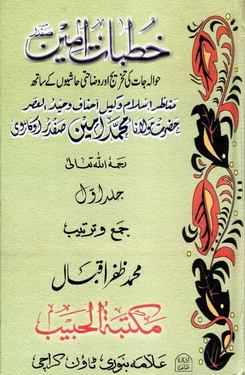 خطباتِ امین صفدر
حوالہ جات کی تخریج اور وضاحتی حاشیوں کے ساتھ
مناظرِ اسلام وکیلِ احناف وحید العصر
حضرت مولانا محمد امین صفدر اوکاڑوی
رحمۃ اللہ تعالیٰ
جلد اوّل
جمع و ترتیب
محمد ظفر اقبال
مکتبۃ الحبیب
علامہ بنوری ٹاؤن کراچی